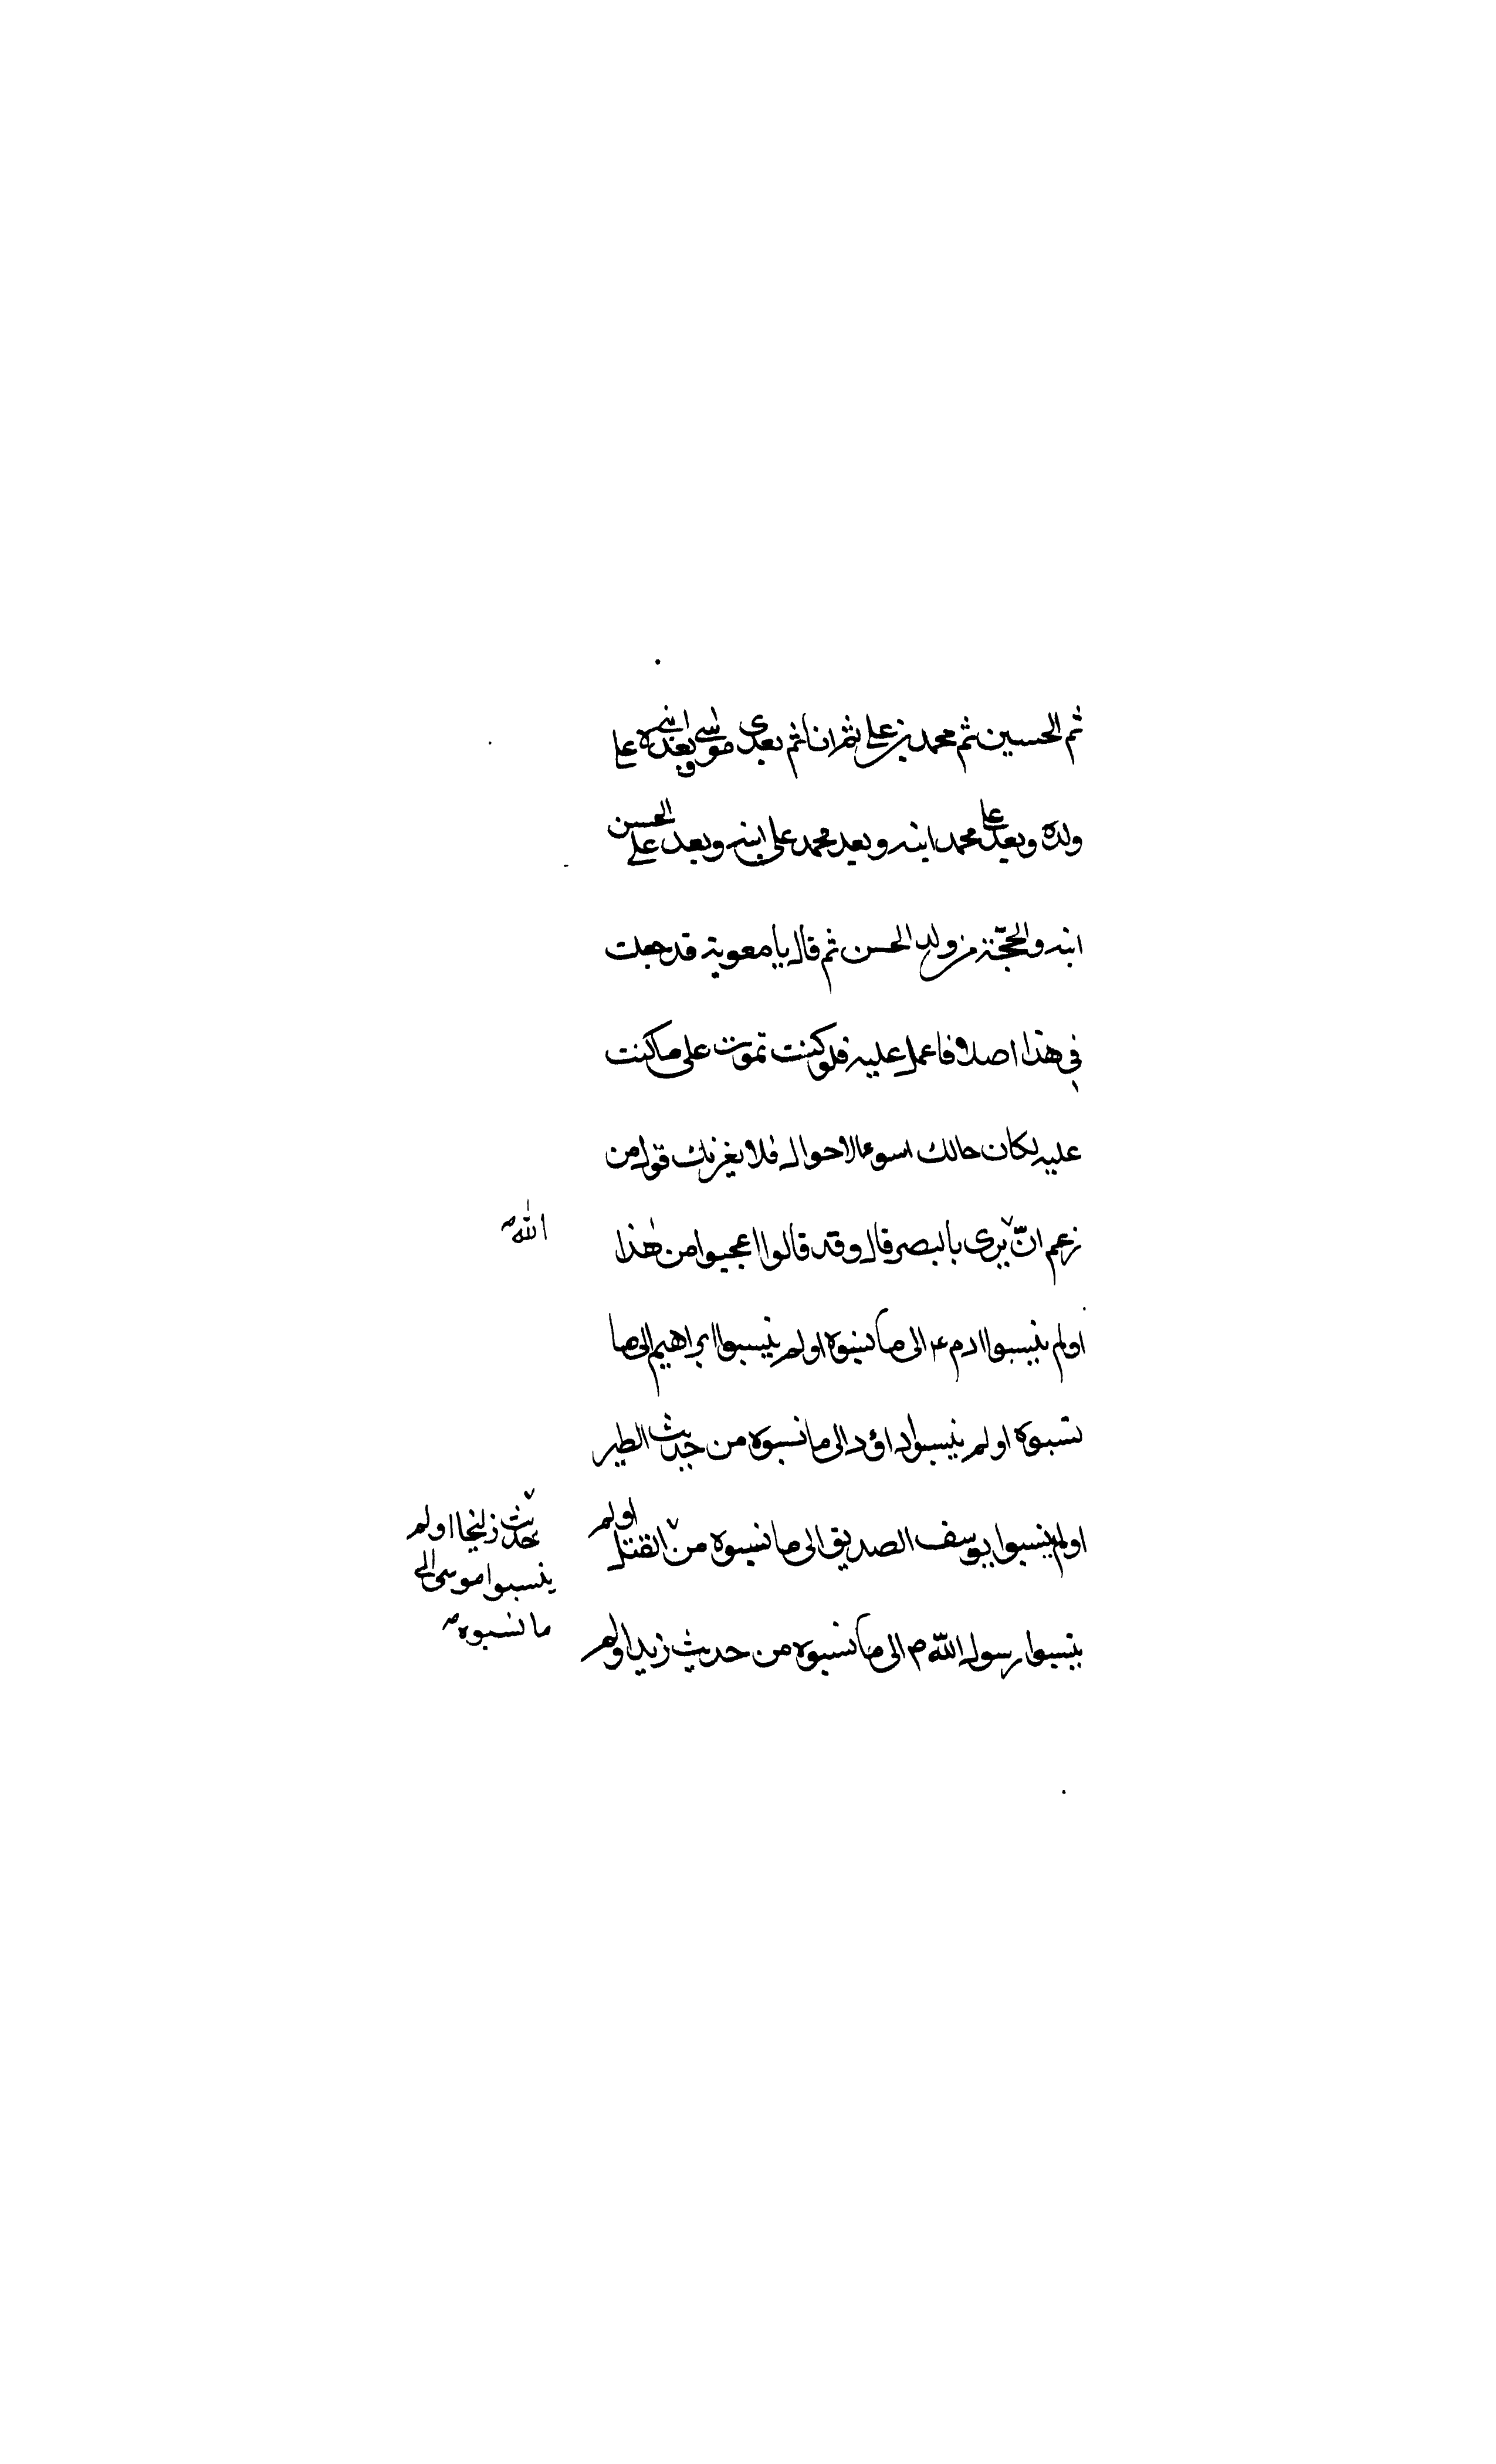 ثم الحسين ثم محمد بن علي ثم انا ثم بعدي موسى ابنى وبعده علي
ولده وبعد علي محمد ابنه وبعد محمد علي ابنه وبعد علي الحسن
ابنه والحجّة من ولد الحسن ثم قال يا معوية قد جعلت
في هذا اصلا فاعمل عليه فلو كنت تموت على ما كنت
عليه لكان حالك اسوء الاحوال فلا يغرنك قول من
زعم انّ يرى بالبصر قال وقد قالوا اعجبوا من هذا
الله
اولم ينسبوا ادم ع الى ما نسبوه اولم ينسبوا ابراهيم الى ما
نسبوه اولم ينسبوا داؤد الى ما نسبوه من حديث الطير
اولم ينسبوا يوسف الصديق الى ما نسبوه من القتل اولم
حديث زليخا اولم
ينسبوا موسى الى
ما نسبوه
ينسبوا رسول الله ص الى ما نسبوه من حديث زيد اولم